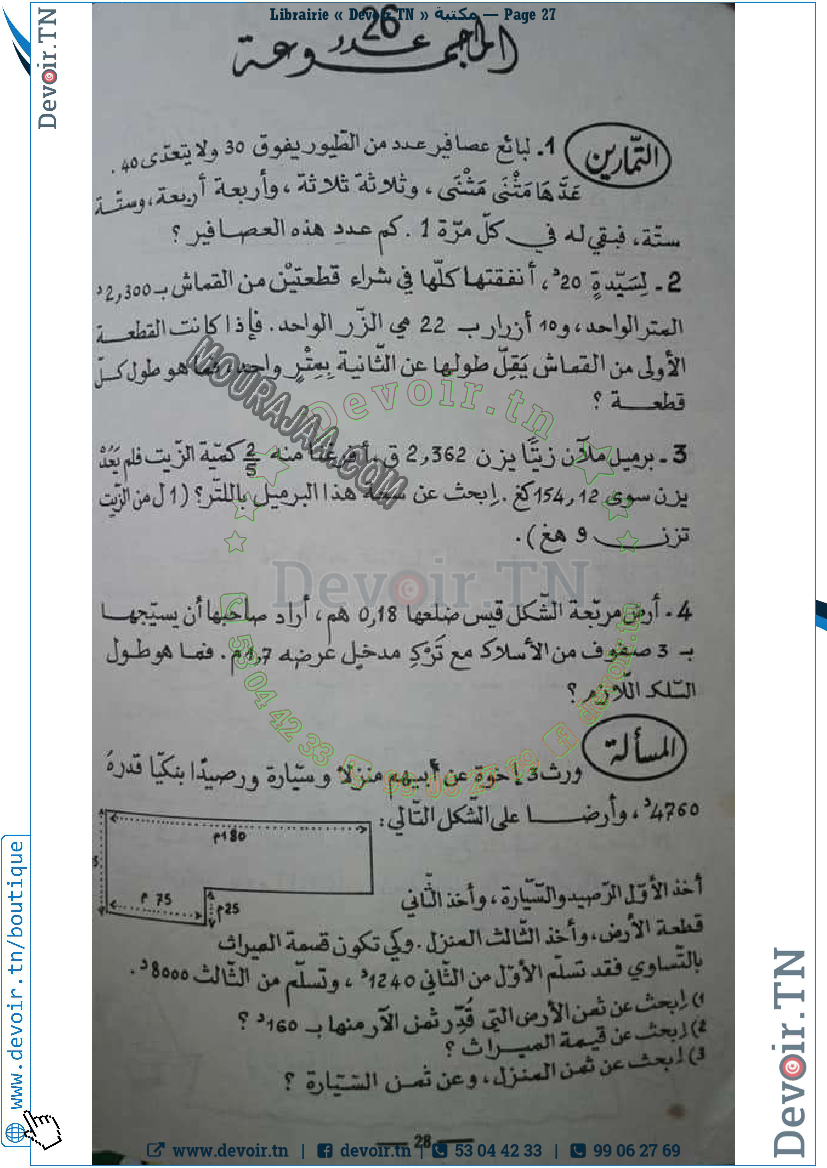 Librairie « Devoir.TN » مكتبة — Page 27
Devoir.TN
المجموعة عدد 26
التّمارين
1. لبائع عصافير عدد من الطّيور يفوق 30 ولا يتعدّى 40.
عَدَّهَا مَثْنَى مَثْنَى، وثلاثة ثلاثة، وأربعة أربعة، وستّة
ستّة، فبقي له في كلّ مرّة 1. كم عدد هذه العصافير؟
2. لِسَيّدةٍ 20د، أنفقتها كلّها في شراء قطعتيْن من القماش بـ 2,300د
المتر الواحد، و10 أزرار بـ 22 مي الزّر الواحد. فإذا كانت القطعة
الأولى من القماش يَقِلّ طولها عن الثّانية بِمِتْرٍ واحد، فما هو طول كلّ
قطعة؟
3. برميل ملآن زيتًا يزن 2,362 ق، أفرغنا منه 2/5 كمّية الزّيت فلم يَعُدْ
يزن سوى 154,12 كغ. ابحث عن سعة هذا البرميل باللتر؟ (1 ل من الزّيت
تزن 9 هغ).
4. أرض مربّعة الشّكل قيس ضلعها 0,18 هم، أراد صاحبها أن يسيّجها
بـ 3 صفوف من الأسلاك مع تَرْكِ مدخل عرضه 1,7م. فما هو طول
السّلك اللّازم؟
المسألة
ورث 3 إخوة عن أبيهم منزلا وسيّارة ورصيدًا بنكيّا قدره
4760د، وأرضا على الشّكل التّالي:
180م
75 م
25م
أخذ الأوّل الرّصيد والسّيّارة، وأخذ الثّاني
قطعة الأرض، وأخذ الثّالث المنزل. وكي تكون قسمة الميراث
بالتّساوي فقد تسلّم الأوّل من الثّاني 1240د، وتسلّم من الثّالث 8000د.
1) ابحث عن ثمن الأرض التي قُدِّر ثمن الآر منها بـ 160د؟
2) ابحث عن قيمة الميراث؟
3) ابحث عن ثمن المنزل، وعن ثمن السّيّارة؟
28
MOURAJAA.COM
Devoir.tn
Devoir.TN
53 04 42 33
99 06 27 69
devoir.tn
www.devoir.tn/boutique
Devoir.TN
www.devoir.tn | devoir.tn | 53 04 42 33 | 99 06 27 69